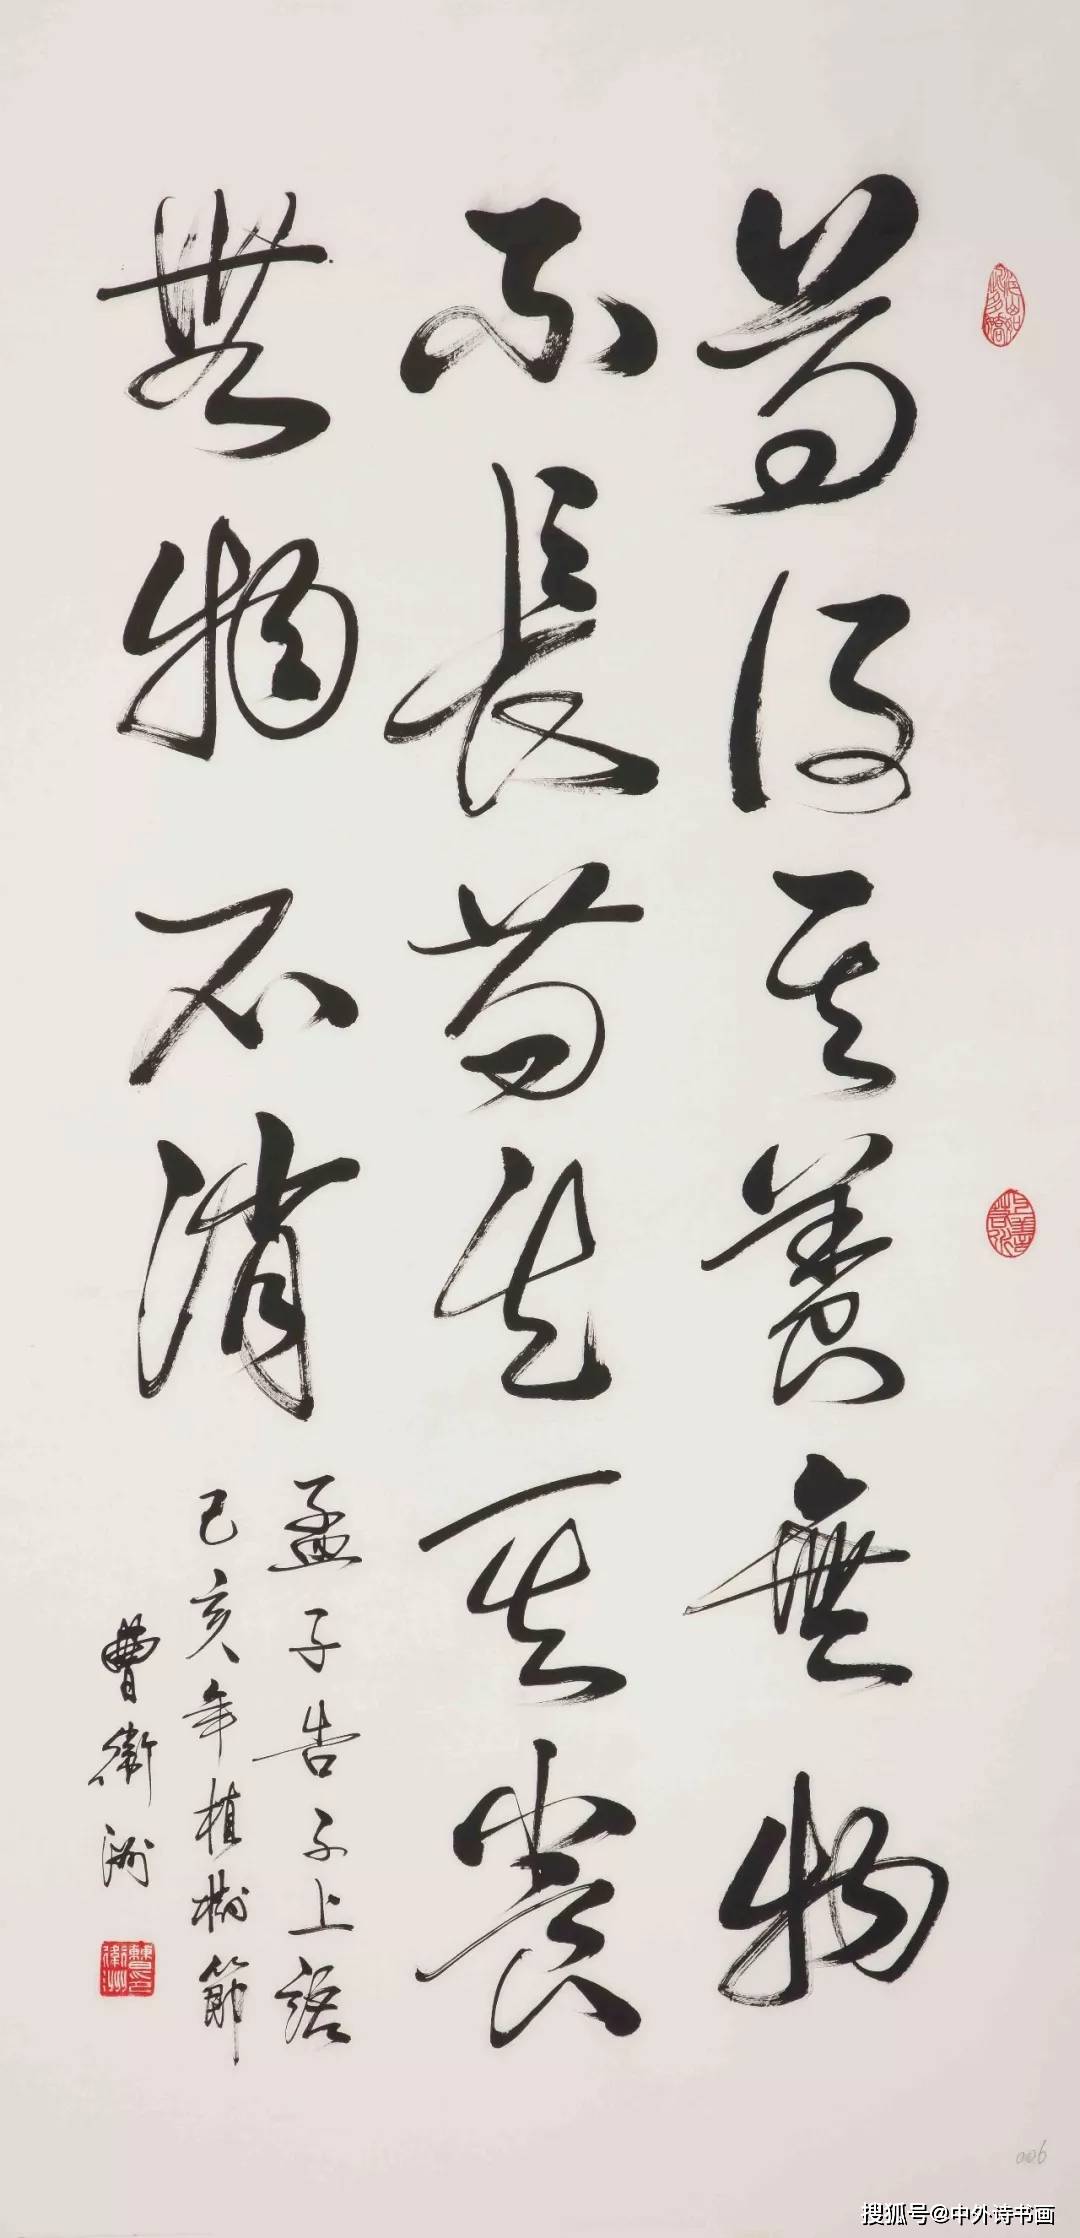 苟得其養無物
不長苟失其養
無物不消
孟子告子上語
己亥年植樹節
曹衛洲
006
搜狐号@中外诗书画